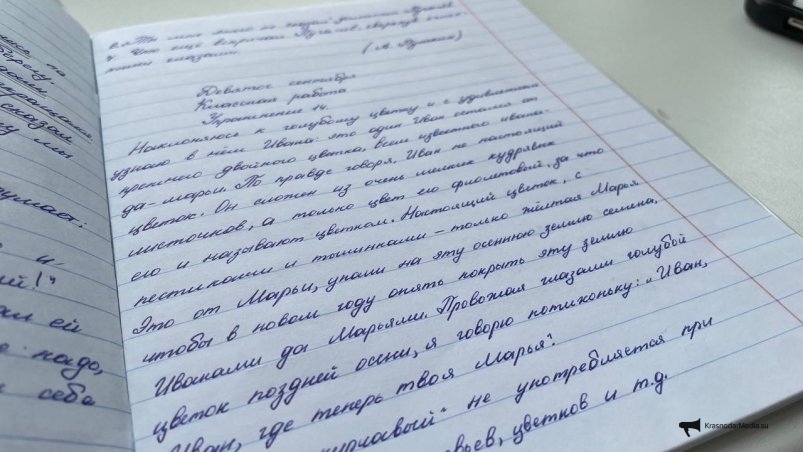 есь по
берегу.
Девятое сентября
Классная работа
Упражнение 14.
Наклоняюсь к голубому цветку и с удивлением
узнаю в нём Ивана: это один Иван остался от
прежнего двойного цветка, всем известного ивана-
да-марьи. По правде говоря, Иван не настоящий
цветок. Он сложен из очень мелких кудрявых
листочков, а только цвет его фиолетовый, за что
его и называют цветком. Настоящий цветок, с
пестиками и тычинками – только жёлтая Марья.
Это от Марьи, упали на эту осеннюю землю семена,
чтобы в новом году опять покрыть эту землю
Иванами да Марьями. Провожая глазами голубой
цветок поздней осени, я говорю потихоньку: „Иван,
Иван, где теперь твоя Марья?
не употребляется при
цветков и т.д.
сказал
мы
и,
ий!"
ей
надо,
себа
KrasnodarMedia.su